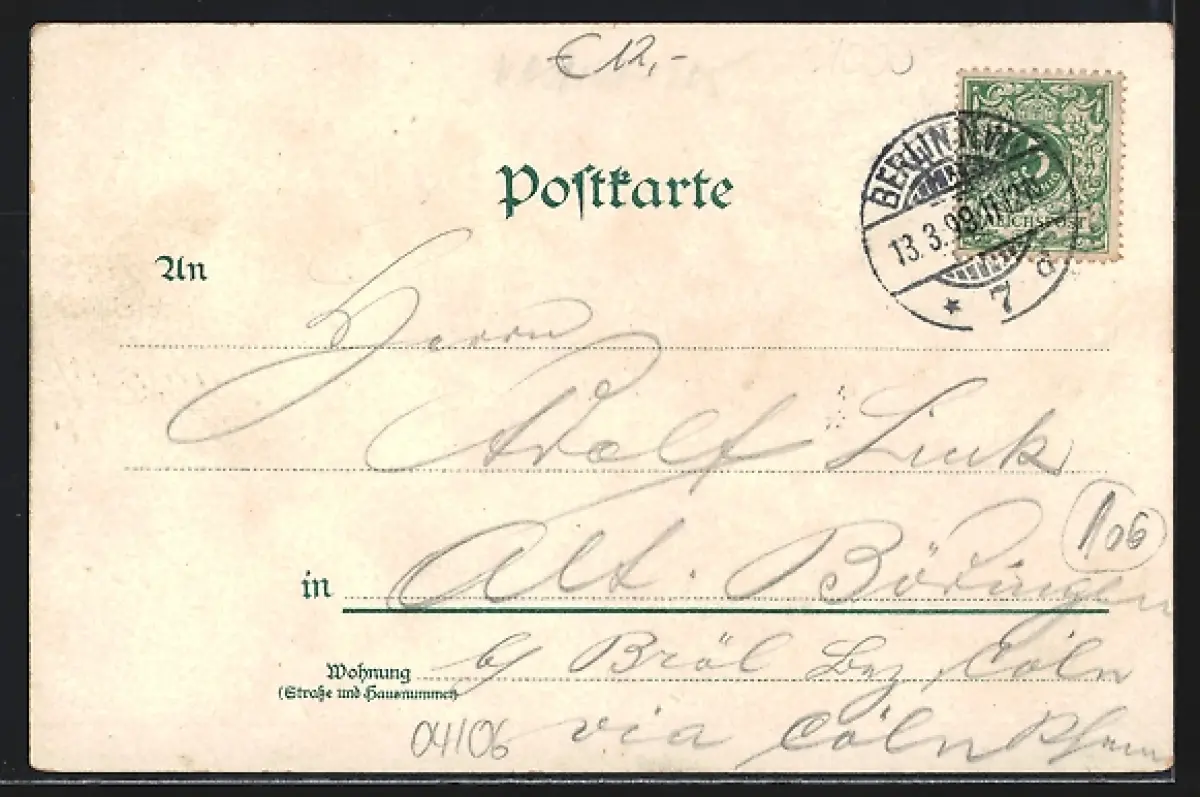 € 12,-
Postkarte
BERLIN.N.W.
13.3.99.11-12V.
* 7 a
5
REICHSPOST
An
Herrn
Adolf Link
106
in Alt. Bödingen
Wohnung b/ Bröl Bez Cöln
(Straße und Hausnummer)
via Cöln Rhein
04106